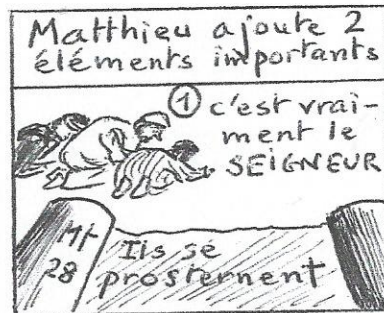 Matthieu ajoute 2
éléments importants
① c'est vrai-
ment le
SEIGNEUR
Mt
28
Ils se
prosternent